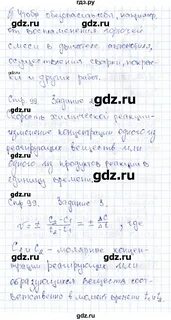 гдз.ру
Чтобы обезопаситься, например,
от воспламенения горючей
смеси в двигателе
осуществления сварки,
и других работ.
Стр. 99. Задание
скорость химической реакции
изменение концентрации одного из
реагирующих веществ или
одного из продуктов реакции в
единицу времени.
Стр 99. Задание 3.
v = ± (C₂-C₁)/(t₂-t₁) = ± ΔC/Δt, где
C₁ и C₂ - молярные концен-
трации реагирующих или
образующихся веществ соот-
ветственно в момент времени t₁ и t₂
gdz.ru